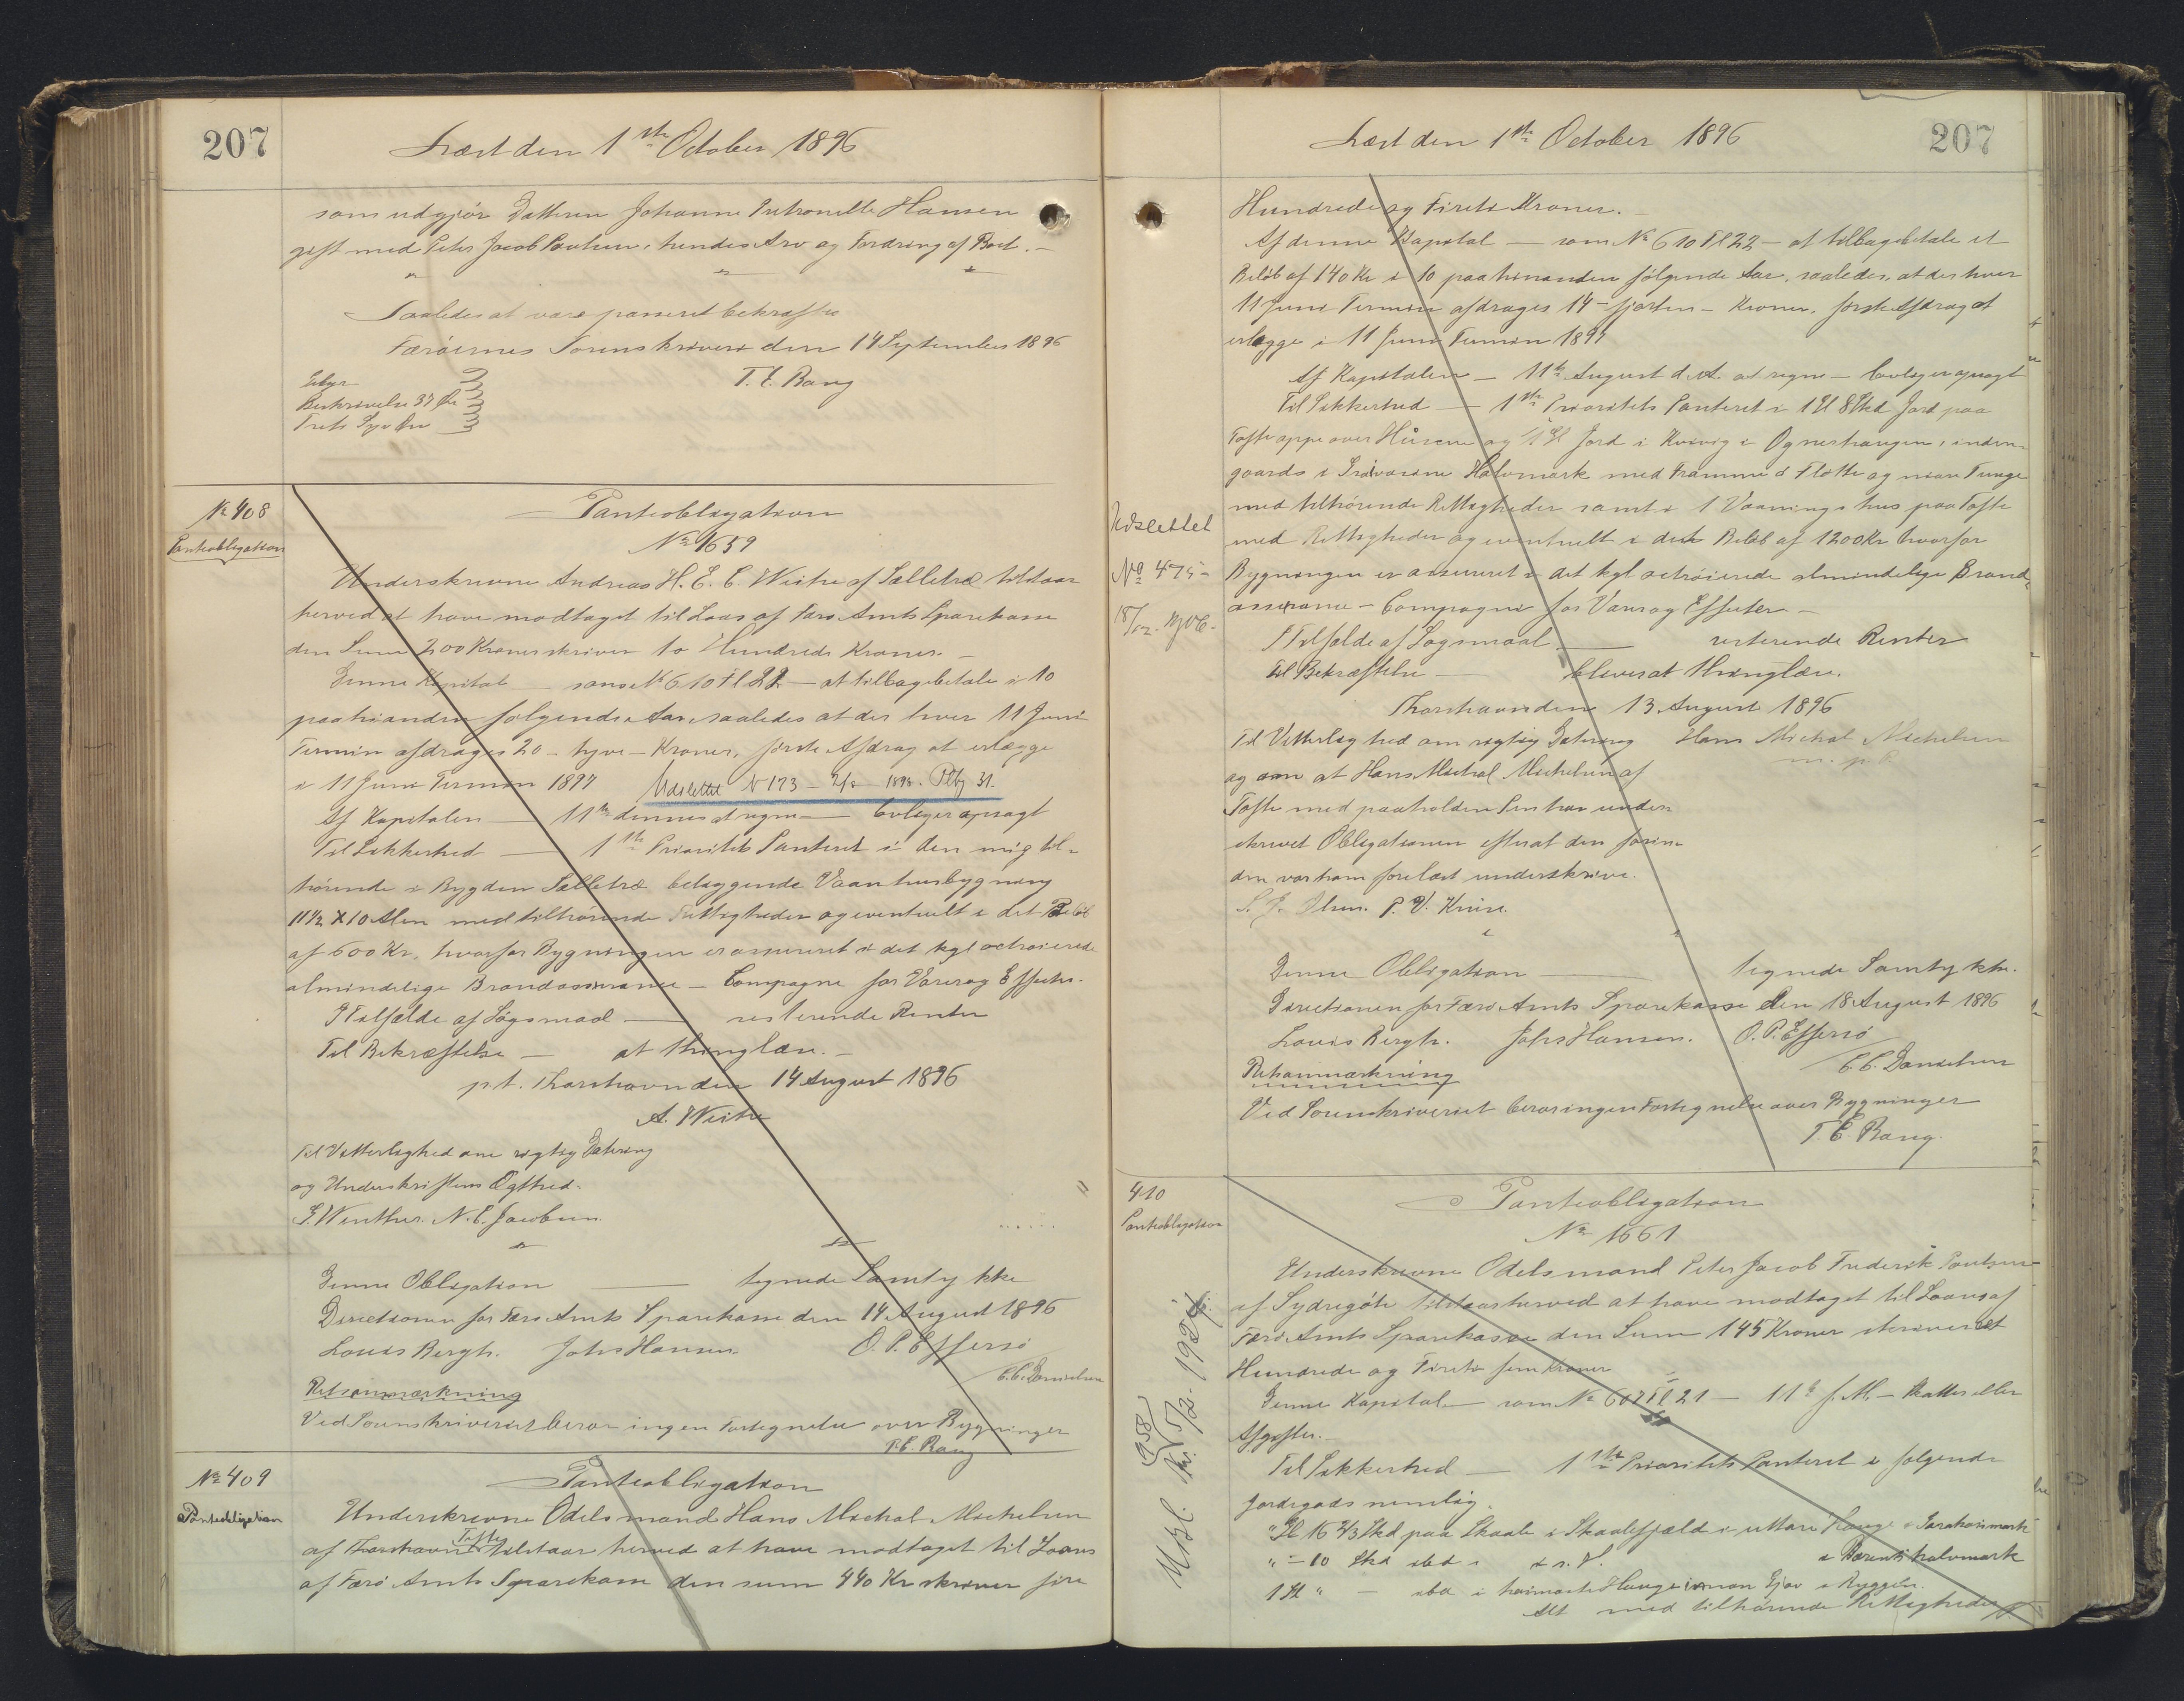 207
Læst den 1ste October 1896
som udgjør Datteren Johanne Petronelle Hansen
gift med Peter Jacob Poulsen, hendes Arv og Fordring af Boet.-
Saaledes at være passeret bekræftes
Færöernes Sorenskriveri den 14 September 1896
T. C. Bang
Gebyr
Beskrivelse 37 Øre
Treti Syv Øre
No 408
Panteobligation
Panteobligation
No 1659
Underskrevne Andreas H. E. C. Weihe af Selletræ tilstaar
herved at have modtaget til Laans af Færø Amts Sparekasse
den Sum 200 Kroner skriver to Hundrede Kroner.-
Denne Kapital — som No 610 Fl 22 — at tilbagebetale i 10
paahinanden følgende Aar, saaledes at der hver 11 Juni
Termin afdrages 20 - tyve - Kroner, første Afdrag at erlægge
i 11 Juni Termin 1897 Udslettet No 173 - 2/8 1898. Pltg 31.
Af Kapitalen — 11te dennes at regne — Boliger opsagt
Til Sikkerhed — 1ste Prioritets Panteret i den mig til-
hørende i Bygden Selletræ beliggende Vaanhusbygning
11½ X 10 Alen med tilhørende Rettigheder og eventuelt i det Beløb
af 600 Kr. hvorfor Bygningen er assureret i det kgl octroierede
almindelige Brandassurance - Compagne for Varer og Effecter.
I Tilfælde af Søgsmaal — resterende Renter
Til Bekræftelse — at thinglæse.-
p.t. Thorshavn den 14 August 1896
A. Weihe
Til Vitterlighed om rigtig Datering
og Underskriftens Ægthed.
G. Winther. N. C. Jacobsen.
Denne Obligation — tegnede Samtykke
Directionen for Færø Amts Sparekasse den 14 August 1896
Louis Bergh. Johs Hansen. O. P. Effersö
C. C. Danielsen
Retsanmærkning
Ved Sorenskriveriet beror ingen Fortegnelse over Bygninger
T. C. Bang
No 409
Panteobligation
Panteobligation
Underskrevne Odelsmand Hans Michal Michelsen
af Thorshavn Tofte tilstaar herved at have modtaget til Laans
af Færø Amts Sparekasse den sum 440 Kr skriver fire
207
Læst den 1ste October 1896
Hundrede og Fireti Kroner.-
Af denne Kapital — som No 610 Fl 22 — at tilbagebetale et
Beløb af 140 Kr i 10 paahinanden følgende Aar, saaledes, at der hver
11 Juni Termin afdrages 14 - fjorten - Kroner, første Afdrag at
erlægge i 11 Juni Termin 1897
Af Kapitalen — 11te August d. A. at regne — Boliger opsagt
Til Sikkerhed — 1ste Prioritets Panteret i 1 Gl 8 Skd Jord paa
Tofte oppe over Húsene og Gl Jord i Kvivig i Ognerhaugen, inden-
gaards i Halvmark med Framme á Fløtte og niare Tunge
med tilhørende Rettigheder samt i 1 Vaaningshus paa Tofte
med Rettigheder og eventuelt i det Beløb af 1200 Kr hvorfor
Bygningen er assureret i det kgl octroierede almindelige Brand-
assurance - Compagni for Varer og Effecter.-
I Tilfælde af Søgsmaal — resterende Renter
Til Bekræftelse — bliver at thinglæse.
Thorshavn den 13 August 1896
Til Vitterlighed om rigtig Datering Hans Michal Michelsen
og om at Hans Michal Michelsen af m. p. P.
Tofte med paaholden Pen har under-
skrevet Obligationen efterat den forin-
den var ham forelæst underskrive.
S. P. Olsen. P. V. Kruse.
Denne Obligation — tegnede Samtykke.
Directionen for Færø Amts Sparekasse den 18 August 1896
Louis Bergh. Johs Hansen. O. P. Effersö
C. C. Danielsen
Retsanmærkning
Ved Sorenskriveriet beror ingen Fortegnelse over Bygninger
T. C. Bang.
Udslettet
No 475-
18/12. 1906.
410
Panteobligation
Panteobligation
No 1661
Underskrevne Odelsmand Peter Jacob Frederik Poulsen
af Sydregøte tilstaar herved at have modtaget til Laans af
Færø Amts Sparekasse den Sum 145 Kroner skriver et
Hundrede og Fireti fem Kroner
Denne Kapital — som No 607 Fl 21 — 11te f. M. - Skatter eller
Afgifter.-
Til Sikkerhed — 1ste Prioritets Panteret i følgende
Jordegods nemlig.
" Gl 16 2/3 Skd paa Skaale i Skaalefjæld i uttare Hauge i mark
" - 10 Skd sted i halvmark
1 Gl " — sted i Hauge innan Gjov i Byggen.
Alt med tilhørende Rettigheder